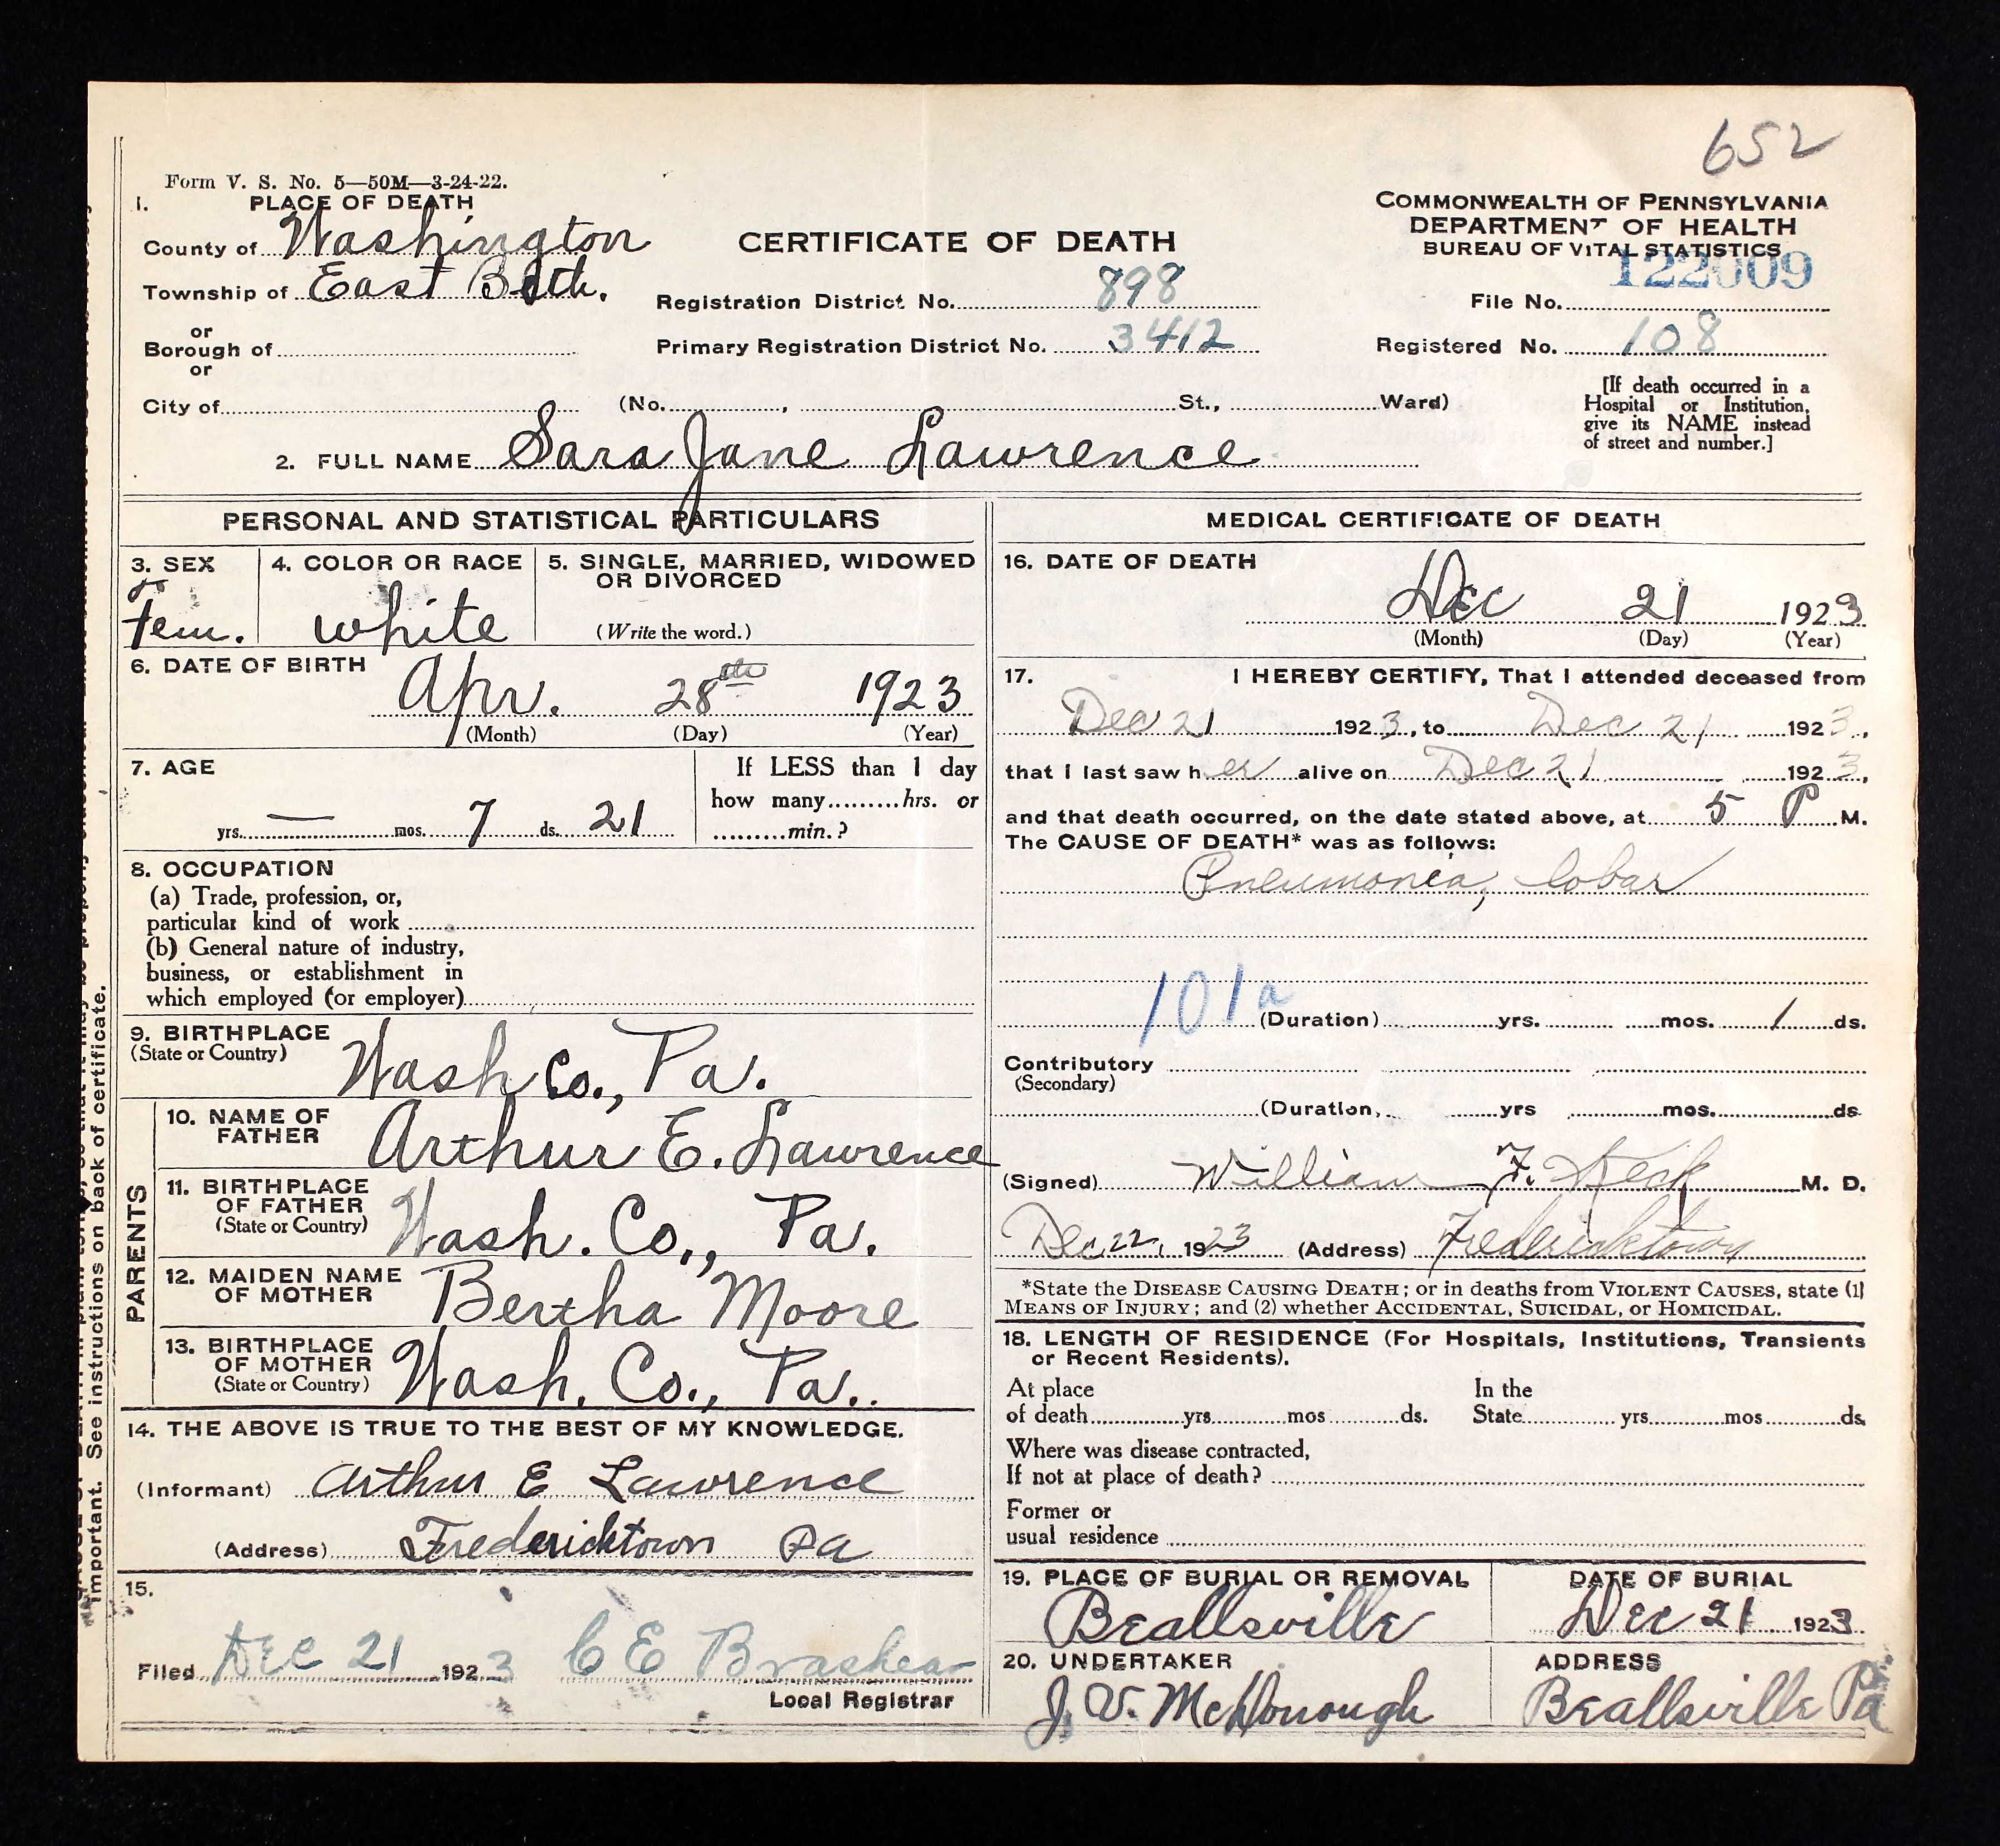 652
Form V. S. No. 5—50M—3-24-22.
1. PLACE OF DEATH
County of Washington
Township of East Beth.
or
Borough of
or
City of
CERTIFICATE OF DEATH
Registration District No. 898
Primary Registration District No. 3412
(No. , St., Ward)
COMMONWEALTH OF PENNSYLVANIA
DEPARTMENT OF HEALTH
BUREAU OF VITAL STATISTICS
File No. 122009
Registered No. 108
[If death occurred in a
Hospital or Institution,
give its NAME instead
of street and number.]
2. FULL NAME Sara Jane Lawrence
PERSONAL AND STATISTICAL PARTICULARS
3. SEX
Fem.
4. COLOR OR RACE
white
5. SINGLE, MARRIED, WIDOWED
OR DIVORCED
(Write the word.)
6. DATE OF BIRTH
Apr. 28th 1923
(Month) (Day) (Year)
7. AGE
yrs. — mos. 7 ds. 21
If LESS than 1 day
how many hrs. or
min.?
8. OCCUPATION
(a) Trade, profession, or,
particular kind of work
(b) General nature of industry,
business, or establishment in
which employed (or employer)
9. BIRTHPLACE
(State or Country)
Wash Co., Pa.
PARENTS
10. NAME OF
FATHER
Arthur E. Lawrence
11. BIRTHPLACE
OF FATHER
(State or Country)
Wash. Co., Pa.
12. MAIDEN NAME
OF MOTHER
Bertha Moore
13. BIRTHPLACE
OF MOTHER
(State or Country)
Wash. Co., Pa.
14. THE ABOVE IS TRUE TO THE BEST OF MY KNOWLEDGE.
(Informant) Arthur E Lawrence
(Address) Fredericktown Pa
15.
Filed Dec 21 1923 C E Brashear
Local Registrar
MEDICAL CERTIFICATE OF DEATH
16. DATE OF DEATH
Dec 21 1923
(Month) (Day) (Year)
17. I HEREBY CERTIFY, That I attended deceased from
Dec 21 1923, to Dec 21 1923,
that I last saw her alive on Dec 21 1923,
and that death occurred, on the date stated above, at 5 P M.
The CAUSE OF DEATH* was as follows:
Pneumonia, lobar
101a
(Duration) yrs. mos. 1 ds.
Contributory
(Secondary)
(Duration, yrs mos. ds
(Signed) William F. M. D.
Dec 22, 1923 (Address) Fredericktown
*State the DISEASE CAUSING DEATH; or in deaths from VIOLENT CAUSES, state (1)
MEANS OF INJURY; and (2) whether ACCIDENTAL, SUICIDAL, or HOMICIDAL.
18. LENGTH OF RESIDENCE (For Hospitals, Institutions, Transients
or Recent Residents).
At place
of death yrs mos ds.
In the
State yrs mos ds.
Where was disease contracted,
If not at place of death?
Former or
usual residence
19. PLACE OF BURIAL OR REMOVAL
Beallsville
DATE OF BURIAL
Dec 21 1923
20. UNDERTAKER
J. V. McDonough
ADDRESS
Beallsville Pa
important. See instructions on back of certificate.